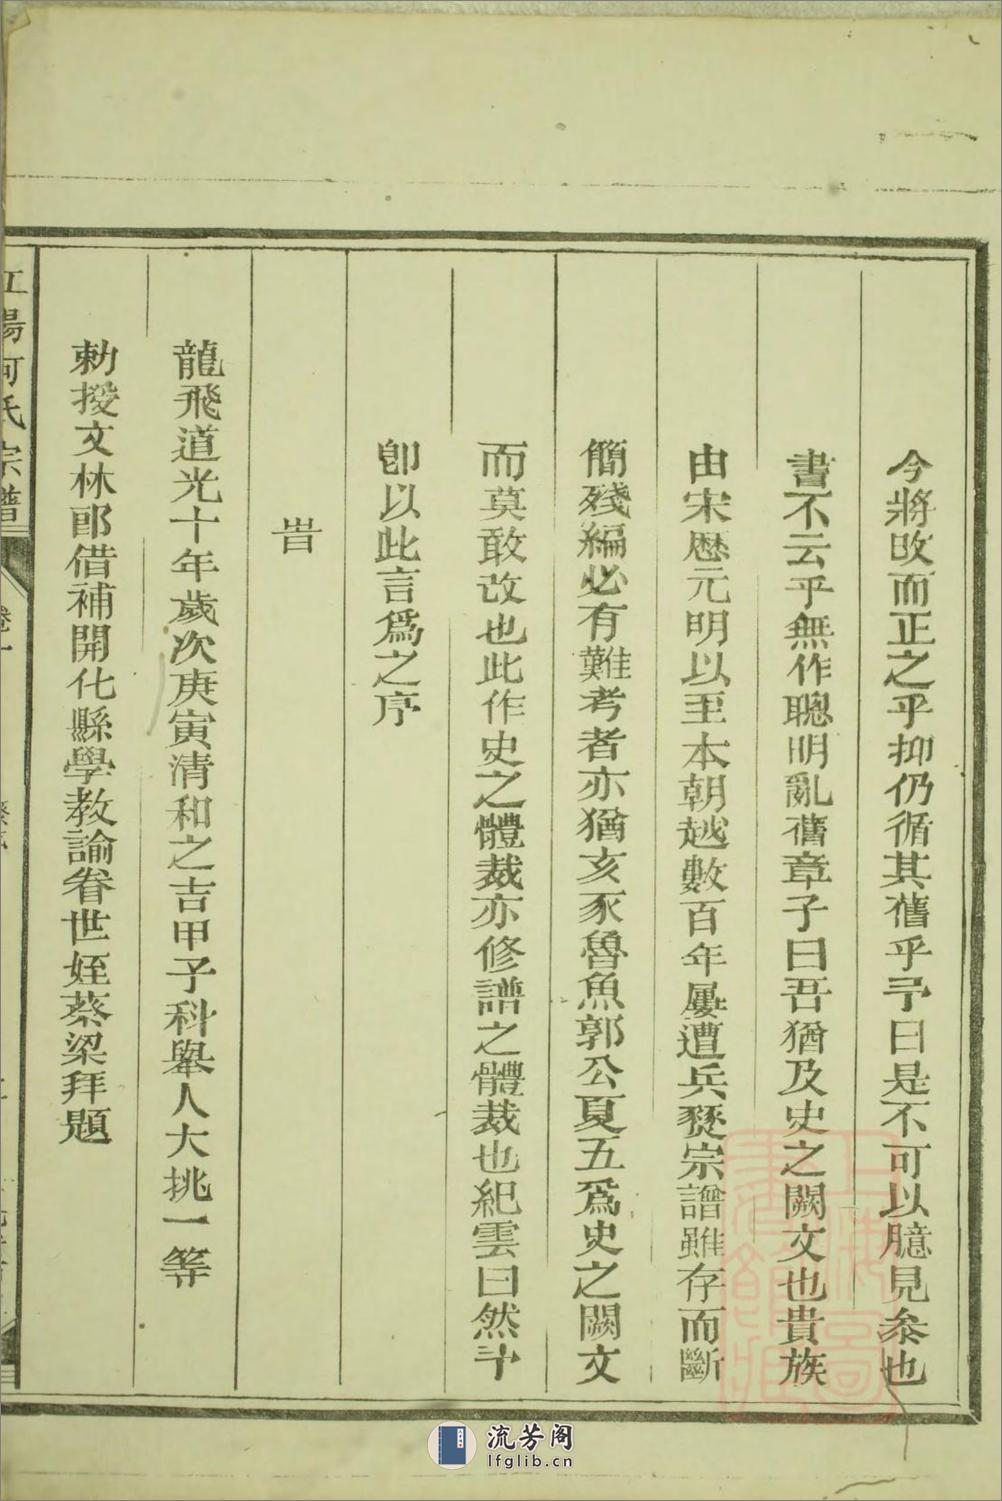 今將改而正之乎抑仍循其舊乎予曰是不可以臆見叅也
書不云乎無作聰明亂舊章子曰吾猶及史之闕文也貴族
由宋歷元明以至本朝越數百年屢遭兵燹宗譜雖存而斷
簡殘編必有難考者亦猶亥豕魯魚郭公夏五爲史之闕文
而莫敢改也此作史之體裁亦修譜之體裁也紀雲曰然予
卽以此言爲之序
旹
龍飛道光十年歲次庚寅清和之吉甲子科舉人大挑一等
勅授文林郎借補開化縣學教諭眷世姪蔡梁拜題
江陽何氏宗譜
卷一
上海圖書館藏
流芳阁
lfglib.cn